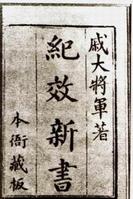 戚大將軍著
紀效新書
本衙藏板